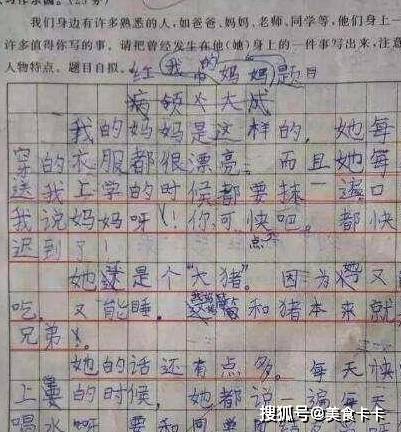 我们身边有许多熟悉的人,如爸爸、妈妈、老师、同学等,他们身上一
许多值得你写的事。请把曾经发生在他(她)身上的一件事写出来,注意
人物特点、题目自拟。
红 我的妈妈 题目
大成
我的妈妈是这样的,她每
穿的衣服都很漂亮。而且她每
送我上学的时候都要抹一遍口
我说妈妈呀!你可快吧。都快
点
迟到了!
她还是个“大猪”。因为又
吃。又能睡。和猪本来就
兄弟。
她的话还有点多。每天快
上的时候,她都说一遍每天
喝水呀 要和同学
搜狐号@美食卡卡